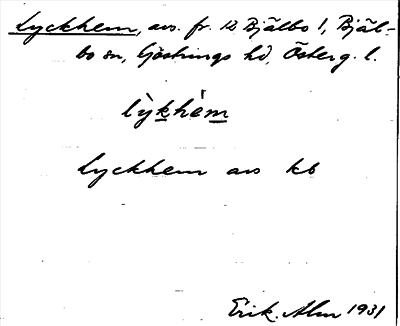 Lyckhem, avs. fr. 12 Bjälbo 1, Bjäl-
bo sn, Göstrings hd, Österg. l.
lỳkhèm
Lyckhem avs kb
Erik. Alm 1931